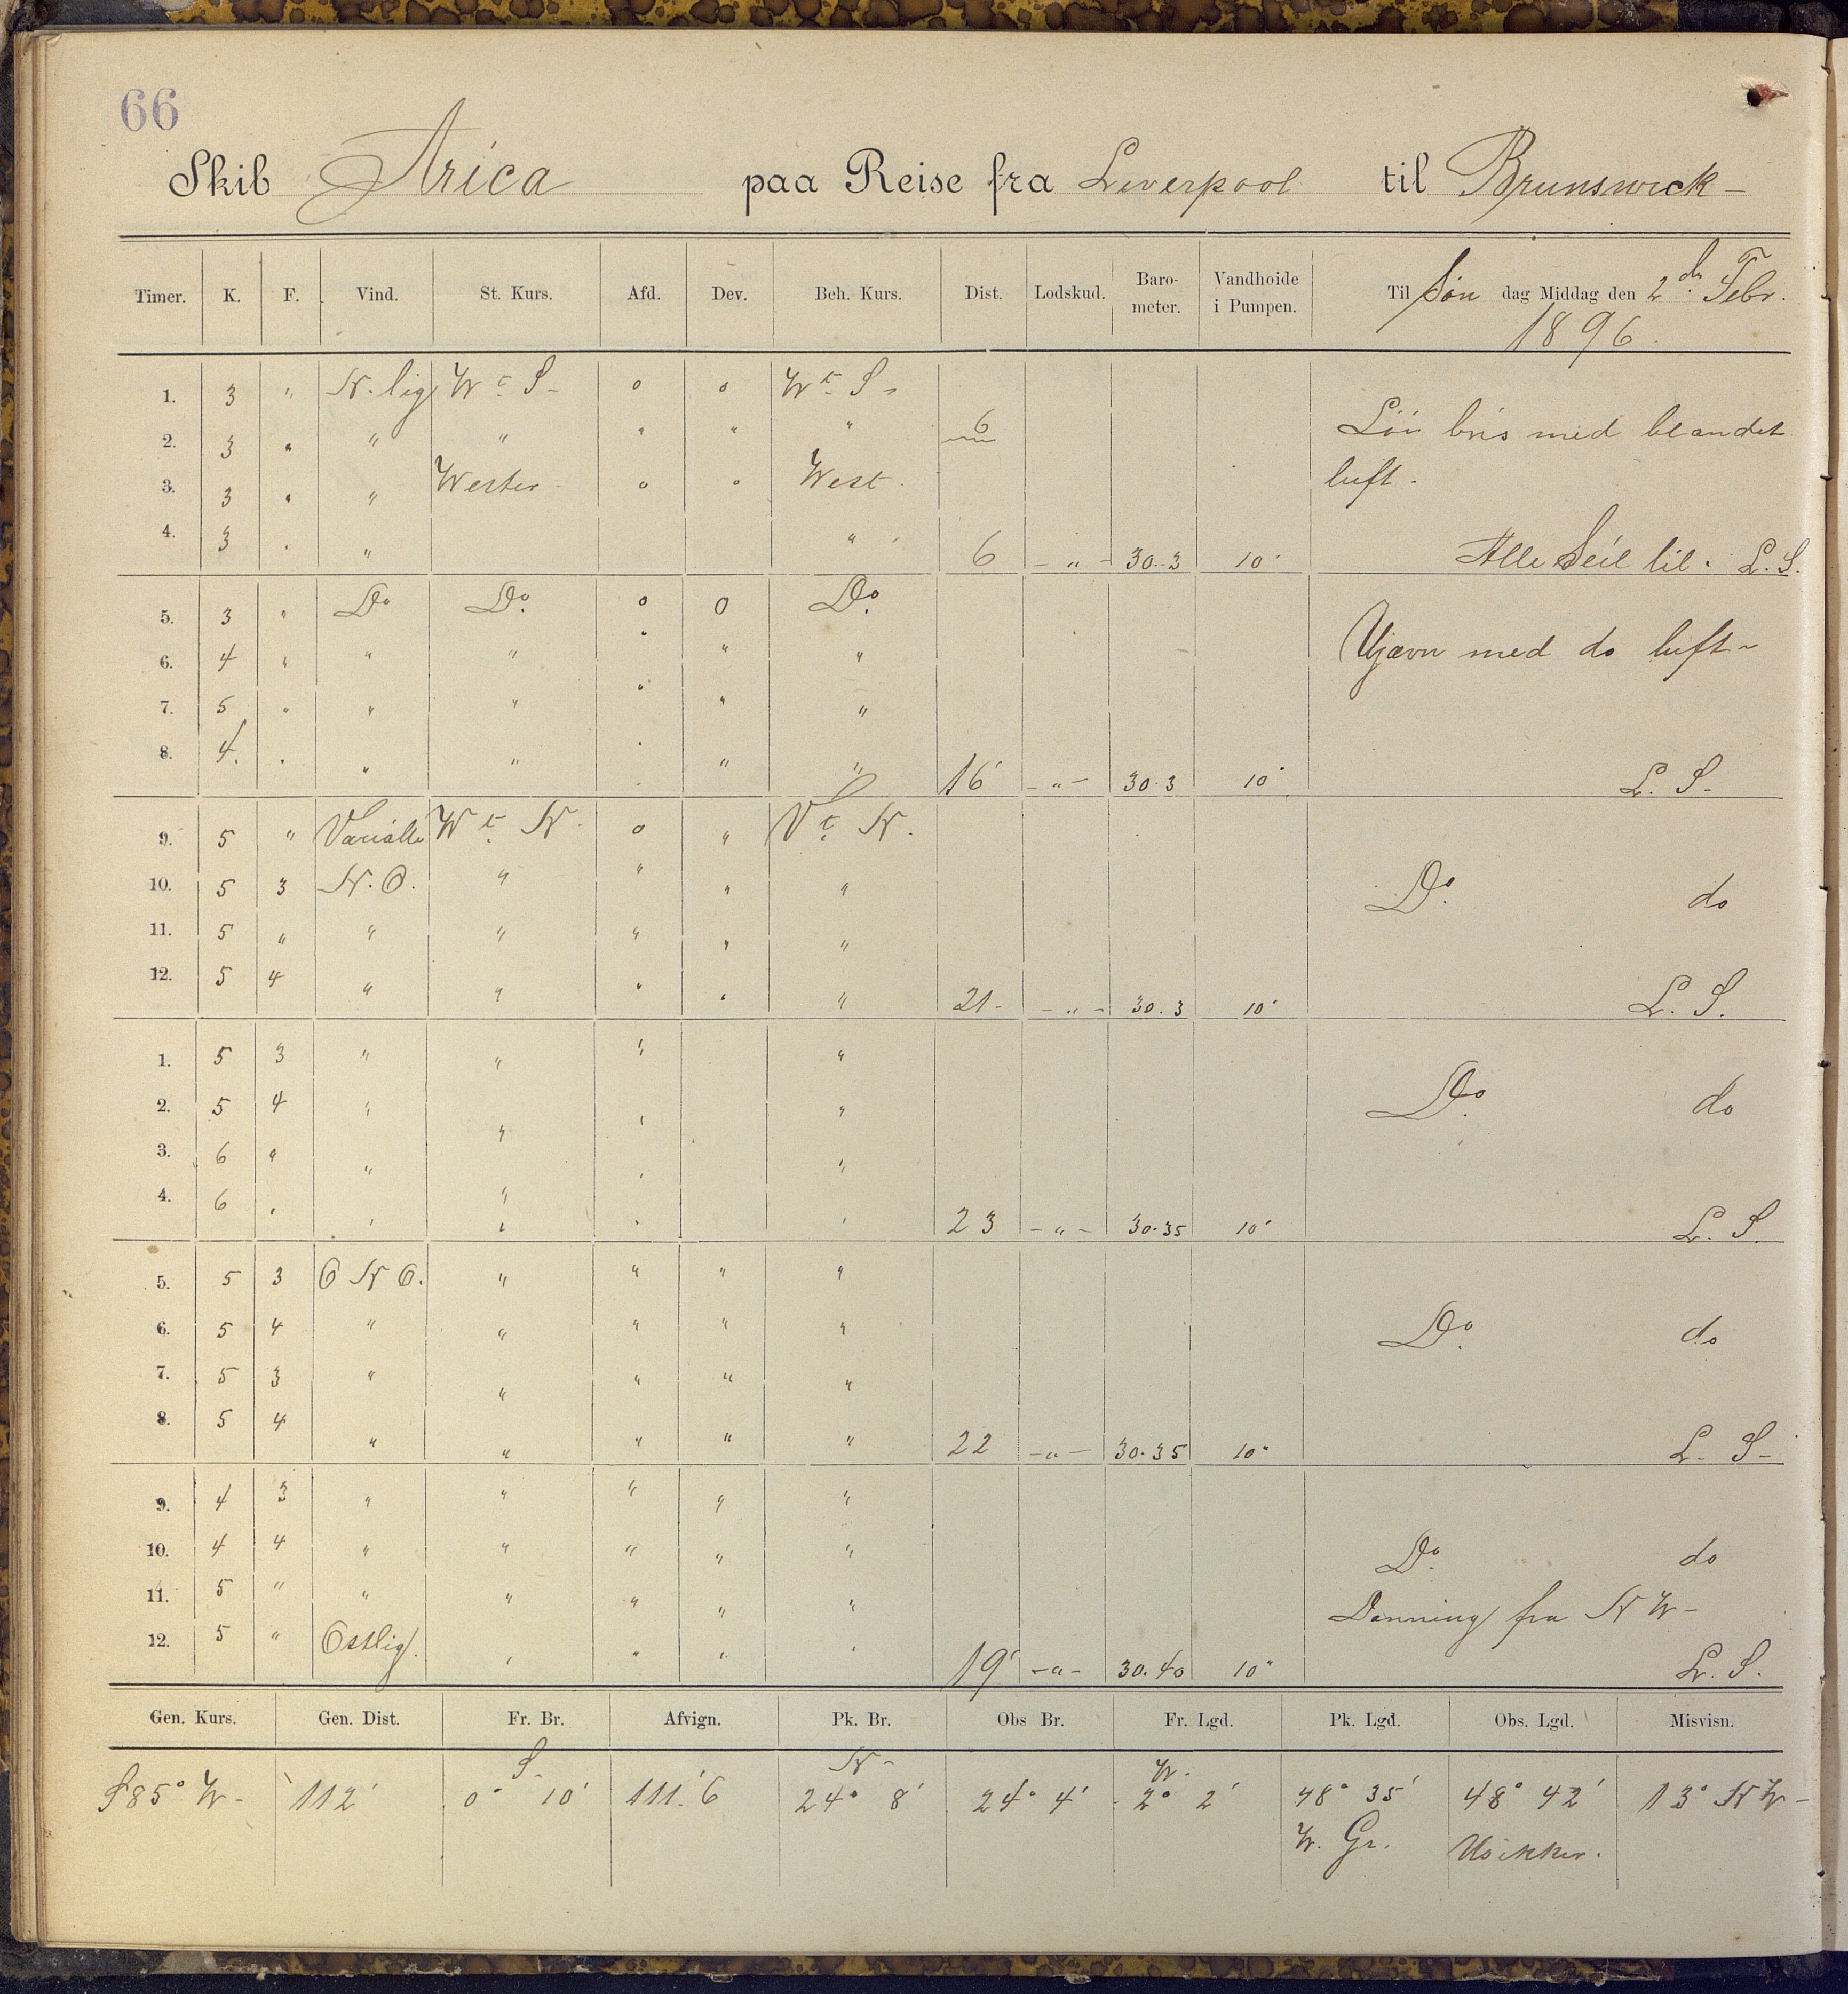 66
Skib Arica paa Reise fra Liverpool til Brunswick -
Timer. K. F. Vind. St. Kurs. Afd. Dev. Beh. Kurs. Dist. Lodskud. Barometer. Vandhoide i Pumpen. Til Søn dag Middag den 2 dn Febr. 1896.
1. 3 " N. lig W t S - 0 0 W t S -
2. 3 " " " " " " 6 Løi bris med blandet
3. 3 " " Wester 0 0 West. luft.
4. 3 " " " 6 - " - 30.3 10" Alle Seil til. L. S.
5. 3 " Do Do 0 0 Do
6. 4 " " " " " " Ujævn med do luft -
7. 5 " " " " " "
8. 4. " " " " " " 16' - " - 30.3 10" L. S.
9. 5 " Variable W t N. 0 " V t N.
10. 5 3 N. O. " " " " Do do
11. 5 " " " " " "
12. 5 4 " " " " " 21 - - " - 30.3 10" L. S.
1. 5 3 " " " "
2. 5 4 " " " " Do do
3. 6 " " " "
4. 6 " " " " " 23 - " - 30.35 10" L. S.
5. 5 3 O N O. " " " "
6. 5 4 " " " " " Do do
7. 5 3 " " " " "
8. 5 4 " " " " " 22 - " - 30.35 10" L. S -
9. 4 3 " " " " "
10. 4 4 " " " " " Do do
11. 5 " " " " " " Dønning fra N W -
12. 5 " Ostlig. " " " " 19' - " - 30.40 10" L. S.
Gen. Kurs. Gen. Dist. Fr. Br. Afvign. Pk. Br. Obs Br. Fr. Lgd. Pk. Lgd. Obs. Lgd. Misvisn.
S. N - W.
S 85° W - 112' 0° 10' 111.'6 24° 8' 24° 4' 2° 2' 48° 35' 48° 42' 13° N W -
W. Gr. Usikker.